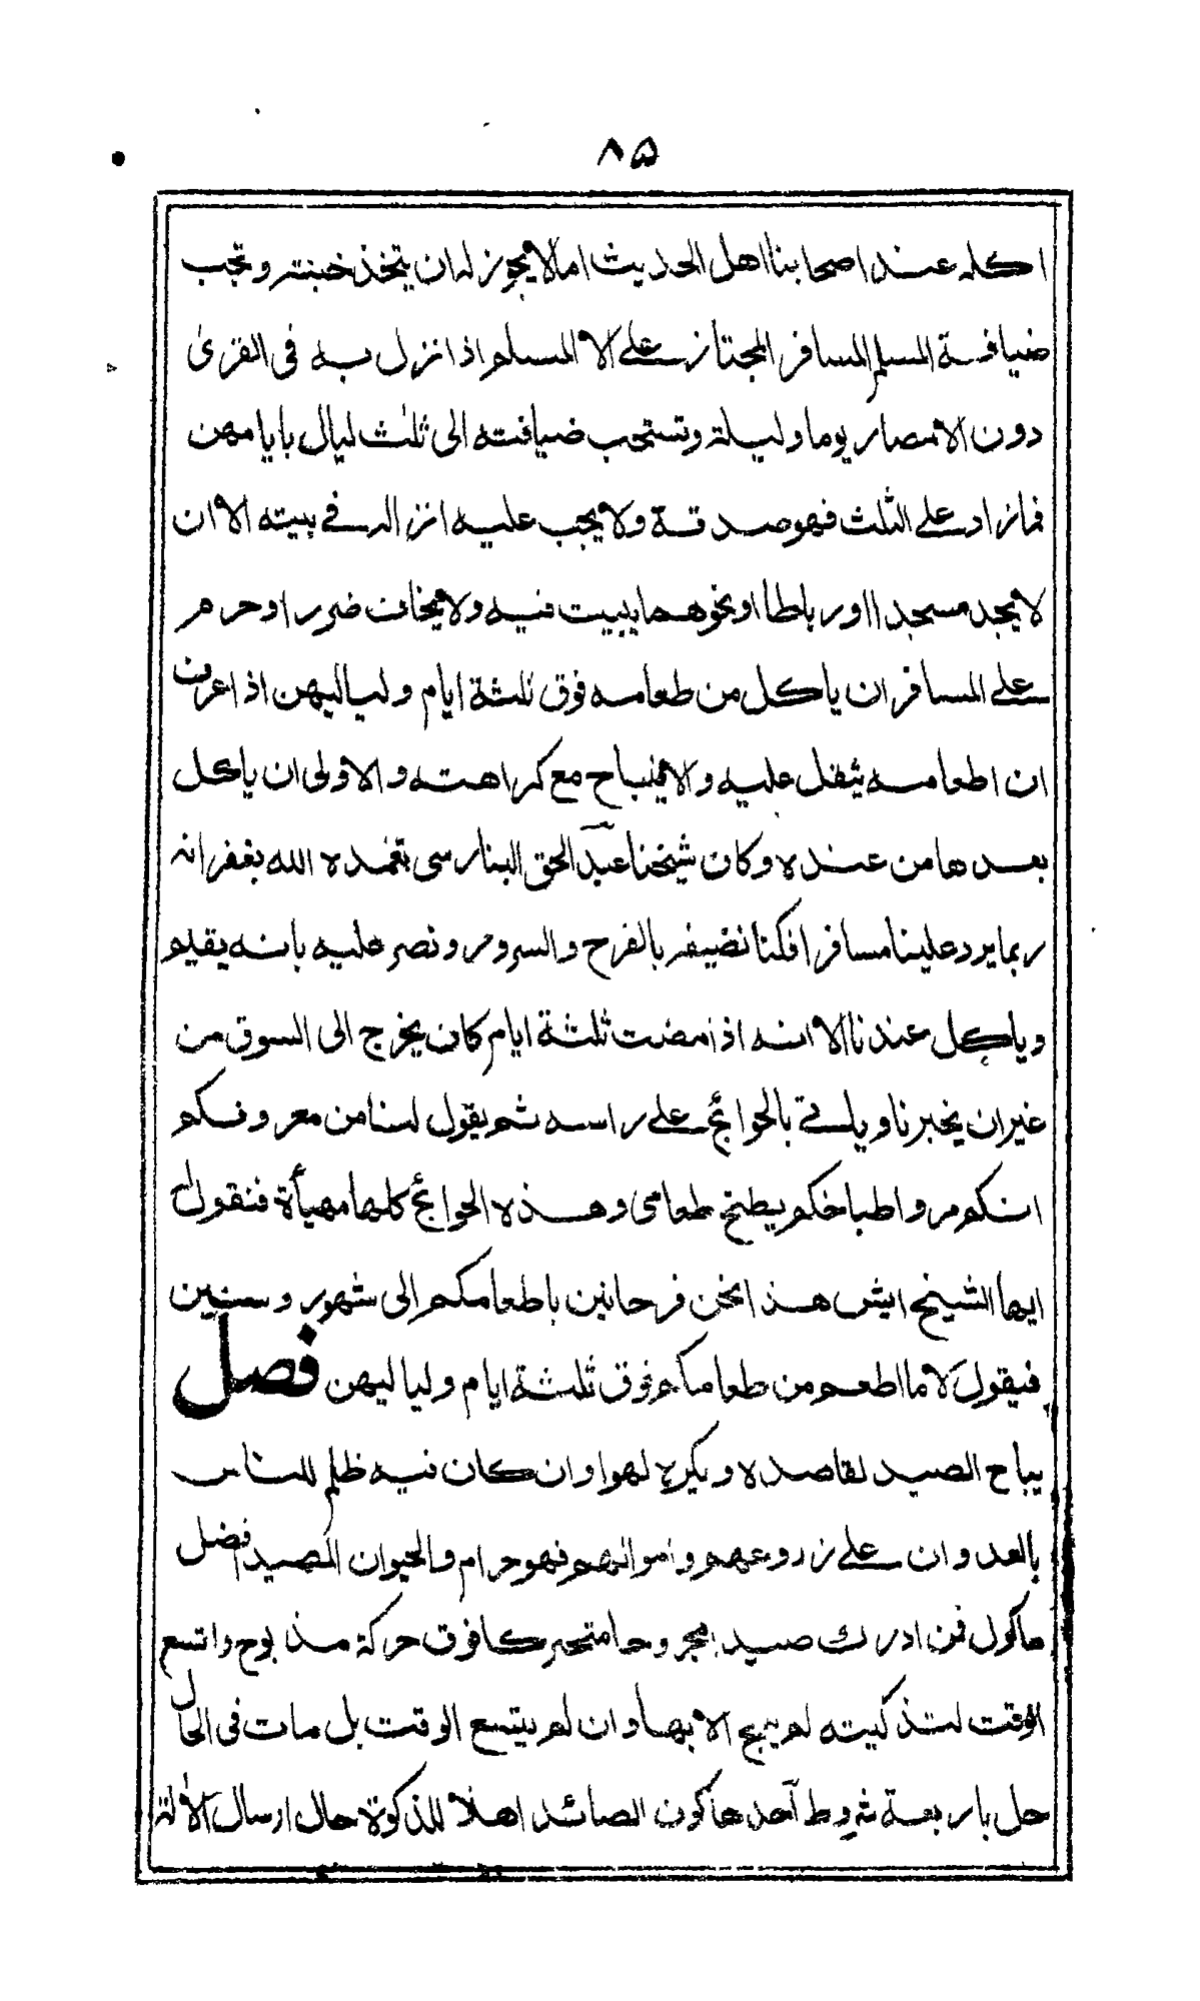 ٨۵
اكله عند اصحابنا اهل الحديث اما لا يجوز له ان يتخذ خبنته وتجب
ضيافة المسلم المسافر المجتاز على لا المسلم اذا نزل به فى القرىٰ
دون الامصار يوما وليلة وتستحب ضيافته الى ثلٰث ليال بايامهن
فما زاد على الثلث فهو صدقة ولا يجب عليه انزاله فے بيته الا ان
لا يجد مسجدا اورباطا اونحوهما يبيت فيه ولا يخاف ضررا وحرم
على المسافر ان ياكل من طعامه فوق ثلثة ايام ولياليهن اذا عرف
ان اطعامه يثقل عليه والا فيباح مع كراهته والاولى ان ياكل
بعدها من عنده وكان شيخنا عبد الحق البنارسى تغمده الله بغفرانه
ربما يرد علينا مسافرا فكنا نضيفه بالفرح والسرور ونصر عليه بانه يقيم
وياكل عندنا الا انه اذا مضت ثلثة ايام كان يخرج الى السوق من
غيران يخبرنا وياتے بالحوائج على راسه ثم يقول لنا من معروفكم
انكم مروا طباخكم يطبخ طعامى وهذه الحوائج كلها مهيأة فنقول له
ايها الشيخ ايش هذا نحن فرحانين باطعامكم الى شهور وسنين
فيقول لا ما اطعم من طعامكم فوق ثلثة ايام ولياليهن فصل
يباح الصيد لقاصده ويكره لهوا وان كان فيه ظلم للناس
بالعدوان على زروعهم واموالهم فهو حرام والحيوان المصيد افضل
ماكول فمن ادرك صيدا مجروحا متحركا فوق حركة مذبوح واتسع
الوقت لتذكيته لم يبح الا بها وان لم يتسع الوقت بل مات فى الحال
حل باربعة شروط آحدها كون الصائد اهلا للذكوة حال ارسال الآلة